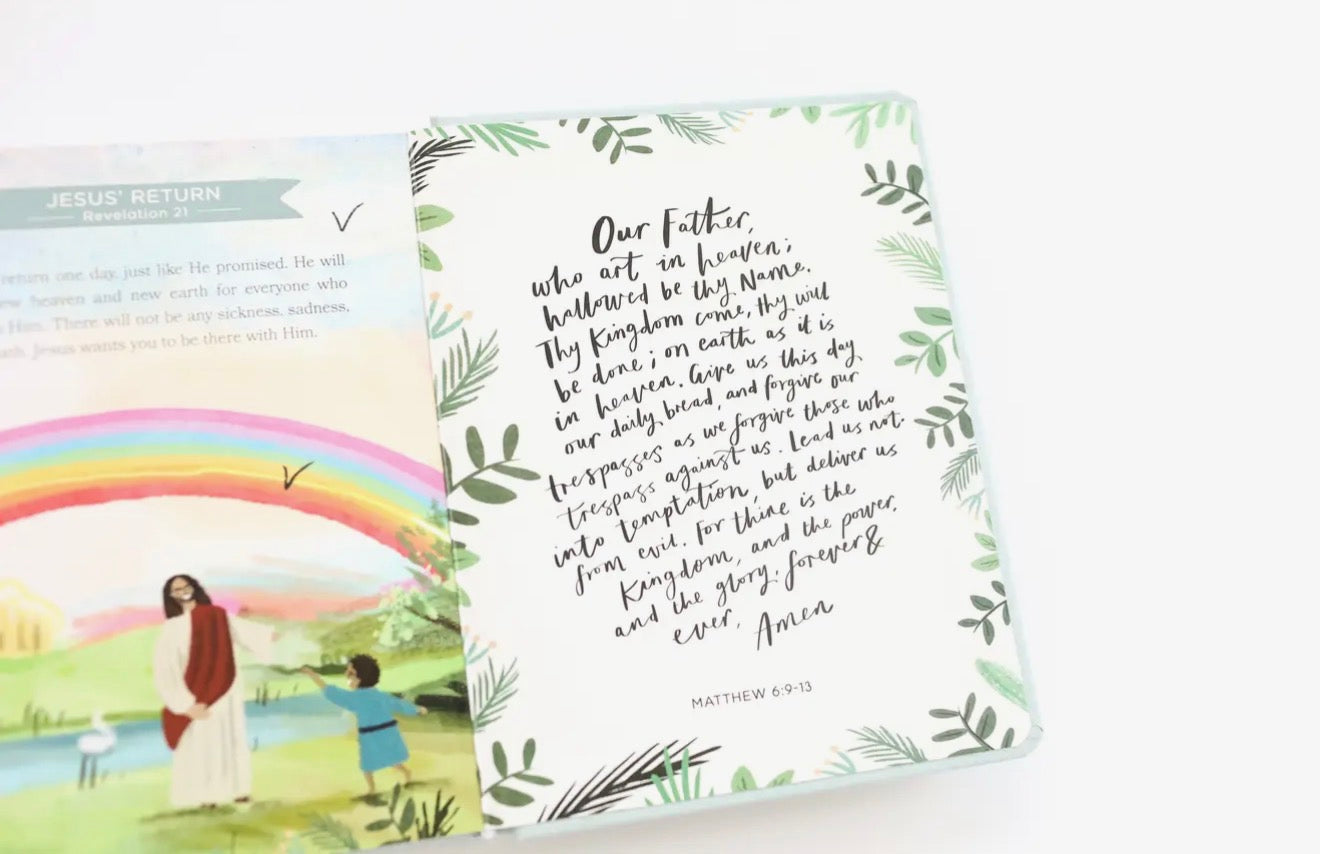 JESUS' RETURN
Revelation 21
return one day, just like He promised. He will
heaven and new earth for everyone who
Him. There will not be any sickness, sadness,
Jesus wants you to be there with Him.
Our Father,
who art in heaven;
hallowed be thy Name.
Thy Kingdom come, thy will
be done; on earth as it is
in heaven. Give us this day
our daily bread, and forgive our
trespasses as we forgive those who
trespass against us. Lead us not
into temptation, but deliver us
from evil. For thine is the
Kingdom, and the power,
and the glory, forever &
ever, Amen
MATTHEW 6:9-13